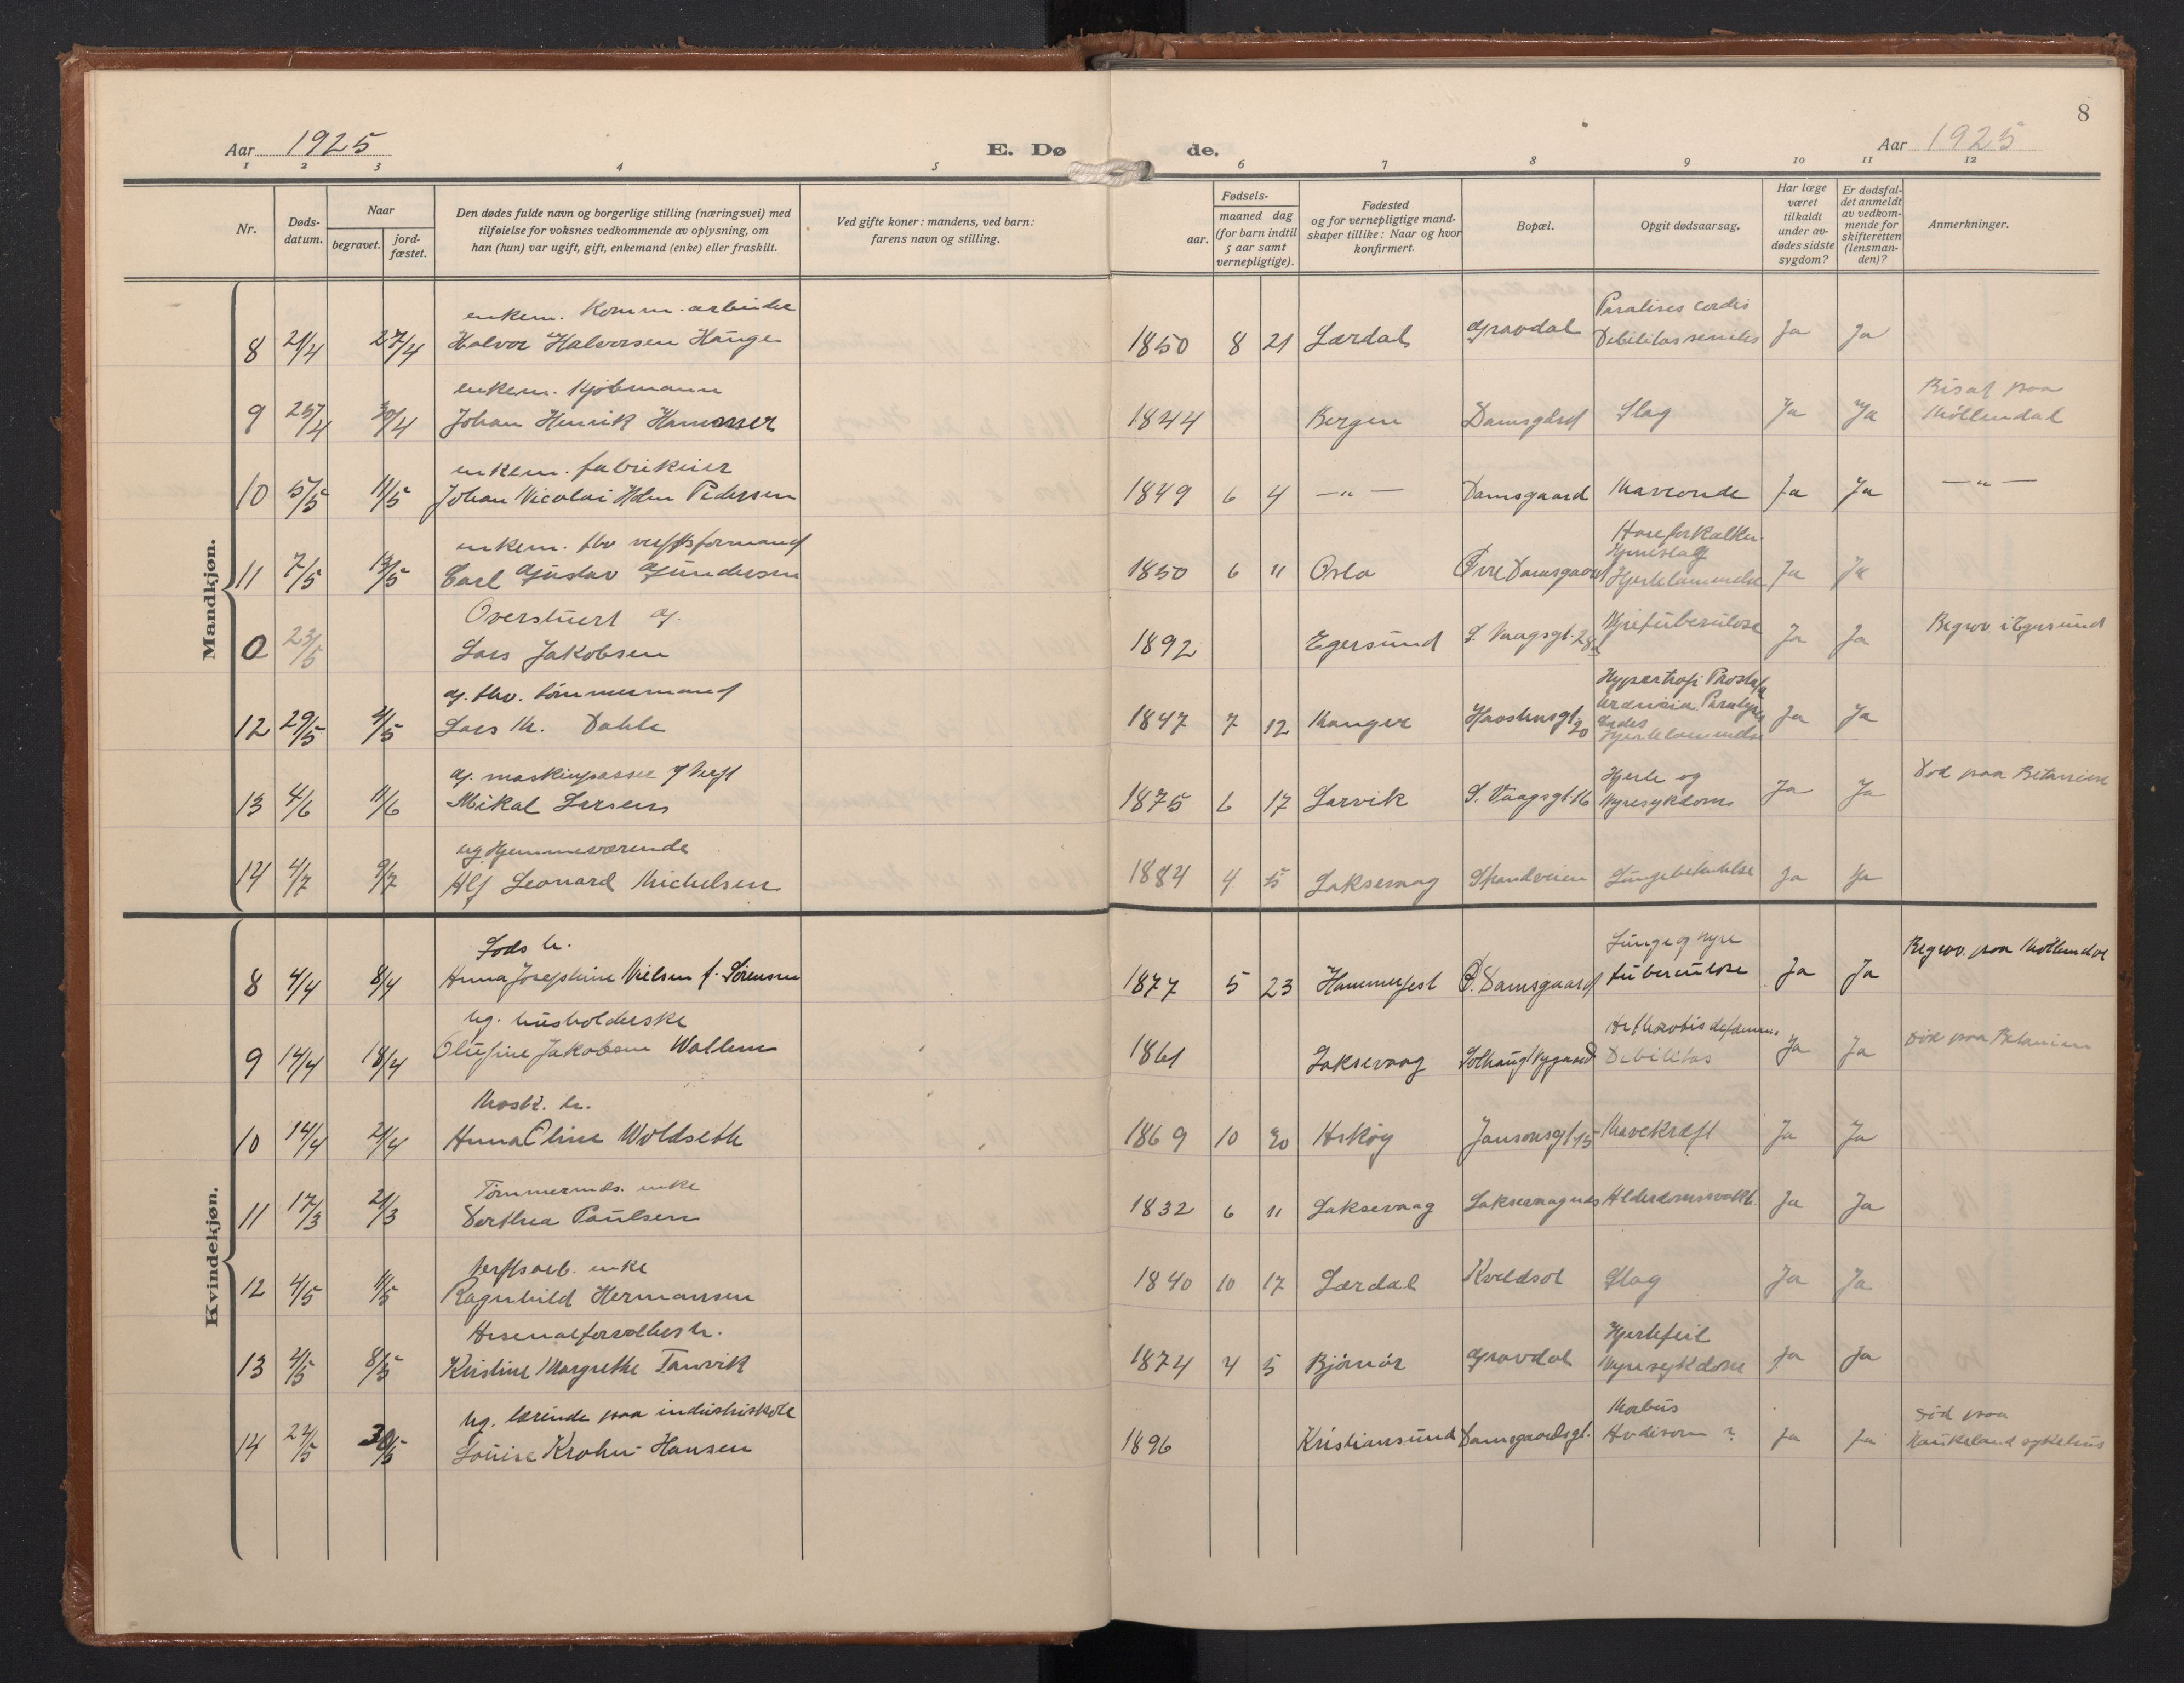 8
Aar 1925
E. Dø
de.
Aar 1925
1 2 3 4 5 6 7 8 9 10 11 12
Nr.
Døds-
datum.
Naar
begravet.
jord-
fæstet.
Den dødes fulde navn og borgerlige stilling (næringsvei) med
tilføielse for voksnes vedkommende av oplysning, om
han (hun) var ugift, gift, enkemand (enke) eller fraskilt.
Ved gifte koner: mandens, ved barn:
farens navn og stilling.
Fødsels-
aar.
maaned dag
(for barn indtil
5 aar samt
vernepligtige).
Fødested
og for vernepligtige mand-
skaper tillike: Naar og hvor
konfirmert.
Bopæl.
Opgit dødsaarsag.
Har læge
været
tilkaldt
under av-
dødes sidste
sygdom?
Er dødsfal-
det anmeldt
av vedkom-
mende for
skifteretten
(lensman-
den)?
Anmerkninger.
Mandkjøn.
enkem. Komm. arbeider Paralises cordis
8 21/4 27/4 Halvor Halvorsen Hauge 1850 8 21 Lærdal Gravdal Debilitas seniles Ja Ja
enkem. Kjøbmann Bisat paa
9 25/4 30/4 Johan Henrik 1844 Bergen Damsgård Slag Ja Ja Møllendal
enkem. fabrikeier
10 5/5 11/5 Johan Nicolai Holm Pedersen 1849 6 4 —"— Damsgaard Maveonde Ja Ja —"—
enkem. fhv verftsformand
Hjerneslag
11 7/5 13/5 Carl Gustav Gundersen 1850 6 11 Oslo Øvre Damsgaard Hjertelammelse Ja Ja
Overstuert g.
0 23/5 Lars Jakobsen 1892 Egersund S. Vaagsgt. 28 Nyretuberulose Ja Ja Begrov. i Egersund
g. fhv. tømmermand Hypertrofi Prostata
12 29/5 4/5 Lars M. Dahle 1847 7 12 Manger 20 Ja Ja
Hjertelammelse
g. maskinpasser Hjerte og Død paa Betanien
13 4/6 11/6 Mikal Larsen 1875 6 17 Larvik S. Vaagsgt. 16 Nyresykdom Ja Ja
ug. Hjemmeværende
14 4/7 9/7 Alf Leonard Michelsen 1884 4 15 Laksevaag Strandveien Lungebetendelse Ja Ja
Kvindekjøn.
Lods h. Lunge og nyre Begrov. paa Møllendal
8 4/4 8/4 Anna Josephine Nielsen f. Sørensen 1877 5 23 Hammerfest Ø. Damsgaard tuberculose Ja Ja
ug. husholderske
9 14/4 18/4 Olufine Jakobsen Wallem 1861 Laksevaag Solhaug Nygaard Debilitas Ja Ja Død paa Betanien
Mask. h.
10 14/4 21/4 Anna Oline Woldseth 1869 10 20 Askøy Jansonsgt 15 Mavekræft Ja Ja
Tømmermds. enke
11 17/3 21/3 Dorthea Paulsen 1832 6 11 Laksevaag Laksevaagnes Alderdomssvakh. Ja Ja
Verftsarb. enke
12 4/5 11/5 Ragnhild Hermansen 1840 10 17 Lærdal Kveldsol Slag Ja Ja
Arsenalforvalters h. Hjertefeil
13 2/5 8/5 Kristine Margrethe Tanvik 1874 4 5 Bjørnør Gravdal Nyresykdom Ja Ja
ug. lærende paa industriskole Morbus Død paa
14 24/5 30/5 Louise Krohn-Hansen 1896 Kristiansund Damsgaardsgt. Addisoni ? Ja Ja Haukeland sykehus